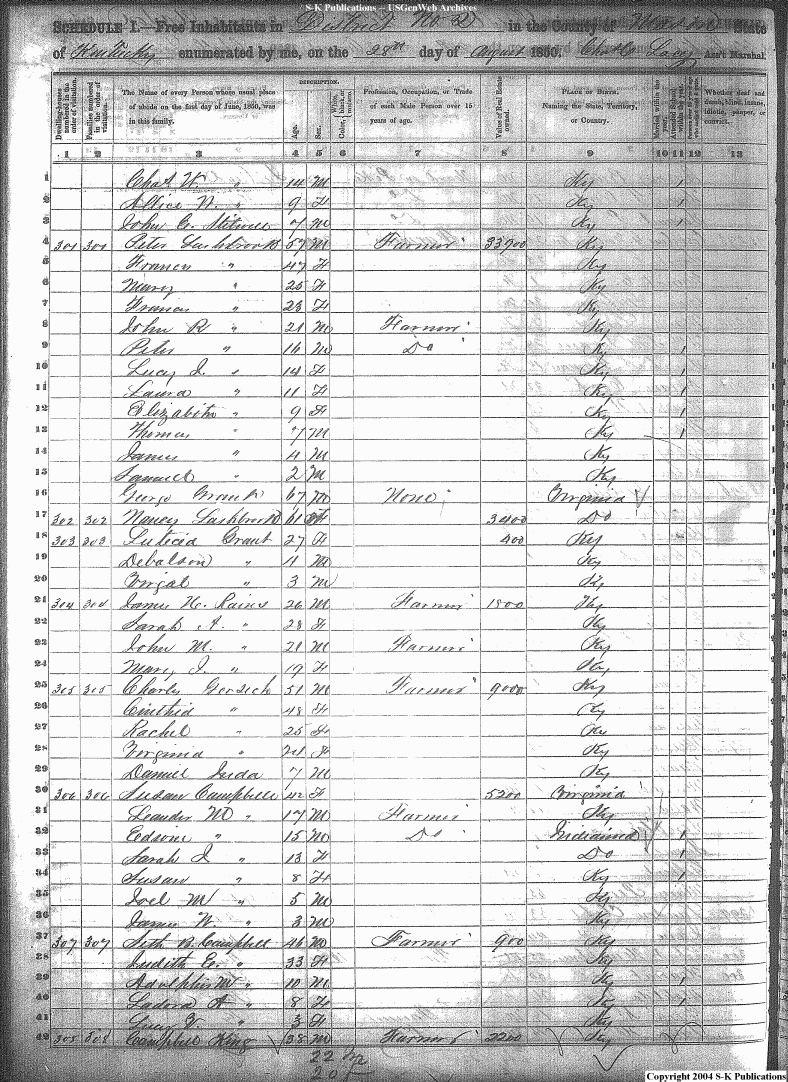 S-K Publications – USGenWeb Archives
SCHEDULE I.—Free Inhabitants in District No 2 in the County of State
of Kentucky enumerated by me, on the 28th day of August 1850. Chat Lacy Ass't Marshal.
Dwelling-houses numbered in the order of visitation.
Families numbered in the order of visitation.
The Name of every Person whose usual place of abode on the first day of June, 1850, was in this family.
DESCRIPTION.
Age.
Sex.
Color, White, black, or mulatto.
Profession, Occupation, or Trade of each Male Person over 15 years of age.
Value of Real Estate owned.
PLACE OF BIRTH. Naming the State, Territory, or Country.
Married within the year.
Attended School within the year.
Whether deaf and dumb, blind, insane, idiotic, pauper, or convict.
1 2 3 4 5 6 7 8 9 10 11 12 13
1 Chat W. " 14 M Ky 1
2 Allice N. " 9 F Ky 1
3 John G. 7 M Ky 1
4 301 301 Peter Lashbrook 57 M Farmer 33900 Ky
5 Frances " 47 F Ky
6 Mary " 25 F Ky
7 Frances " 23 F Ky
8 John R " 21 M Farmer Ky
9 Peter " 16 M Do Ky 1
10 Lucy J. " 14 F Ky 1
11 Laura " 11 F Ky 1
12 Elizabeth " 9 F Ky 1
13 Thomas " 7 M Ky 1
14 James " 4 M Ky
15 Samuel " 2 M Ky
16 George Grant 67 M None Virginia
17 302 302 Nancy Lashbrook 61 F 3400 Do
18 303 303 Luticia Grant 27 F 400 Ky
19 Debalson " 11 M Ky
20 Virgal " 3 M Ky
21 304 304 James H. Rains 26 M Farmer 1800 Ky
22 Sarah A. " 28 F Ky
23 John M. " 21 M Farmer Ky
24 Mary J. " 19 F Ky
25 305 305 Charles 51 M Farmer 9000 Ky
26 Cinthia " 48 F Ky
27 Rachel " 25 F Ky
28 Virginia " 21 F Ky
29 Daniel Juda 7 M Ky
30 306 306 Susan Campbell 42 F 5200 Virginia
31 Leander M " 17 M Farmer Ky
32 Edson " 15 M Do Indiana 1
33 Sarah J. " 13 F Do 1
34 Susan " 8 F Ky 1
35 Joel M " 5 M Ky
36 James W " 3 M Ky
37 307 307 Seth B. Campbell 46 M Farmer 900 Ky
38 Judith E. " 33 F Ky
39 Adolphus W " 10 M Ky 1
40 Ladora A " 8 F Ky 1
41 Lucy V. " 3 F Ky
42 308 308 Campbell King 38 M Farmer 2200 Ky
22 M
20 F
Copyright 2004 S-K Publications